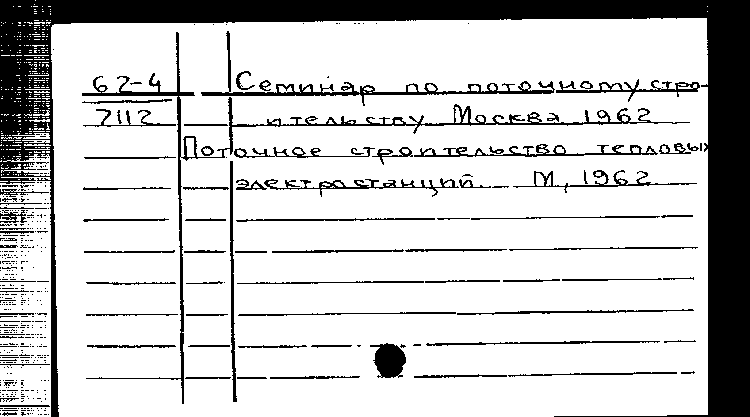 62-4 Семинар по поточному стро-
7112 ительству Москва 1962
Поточное строительство тепловых
электростанций. М, 1962